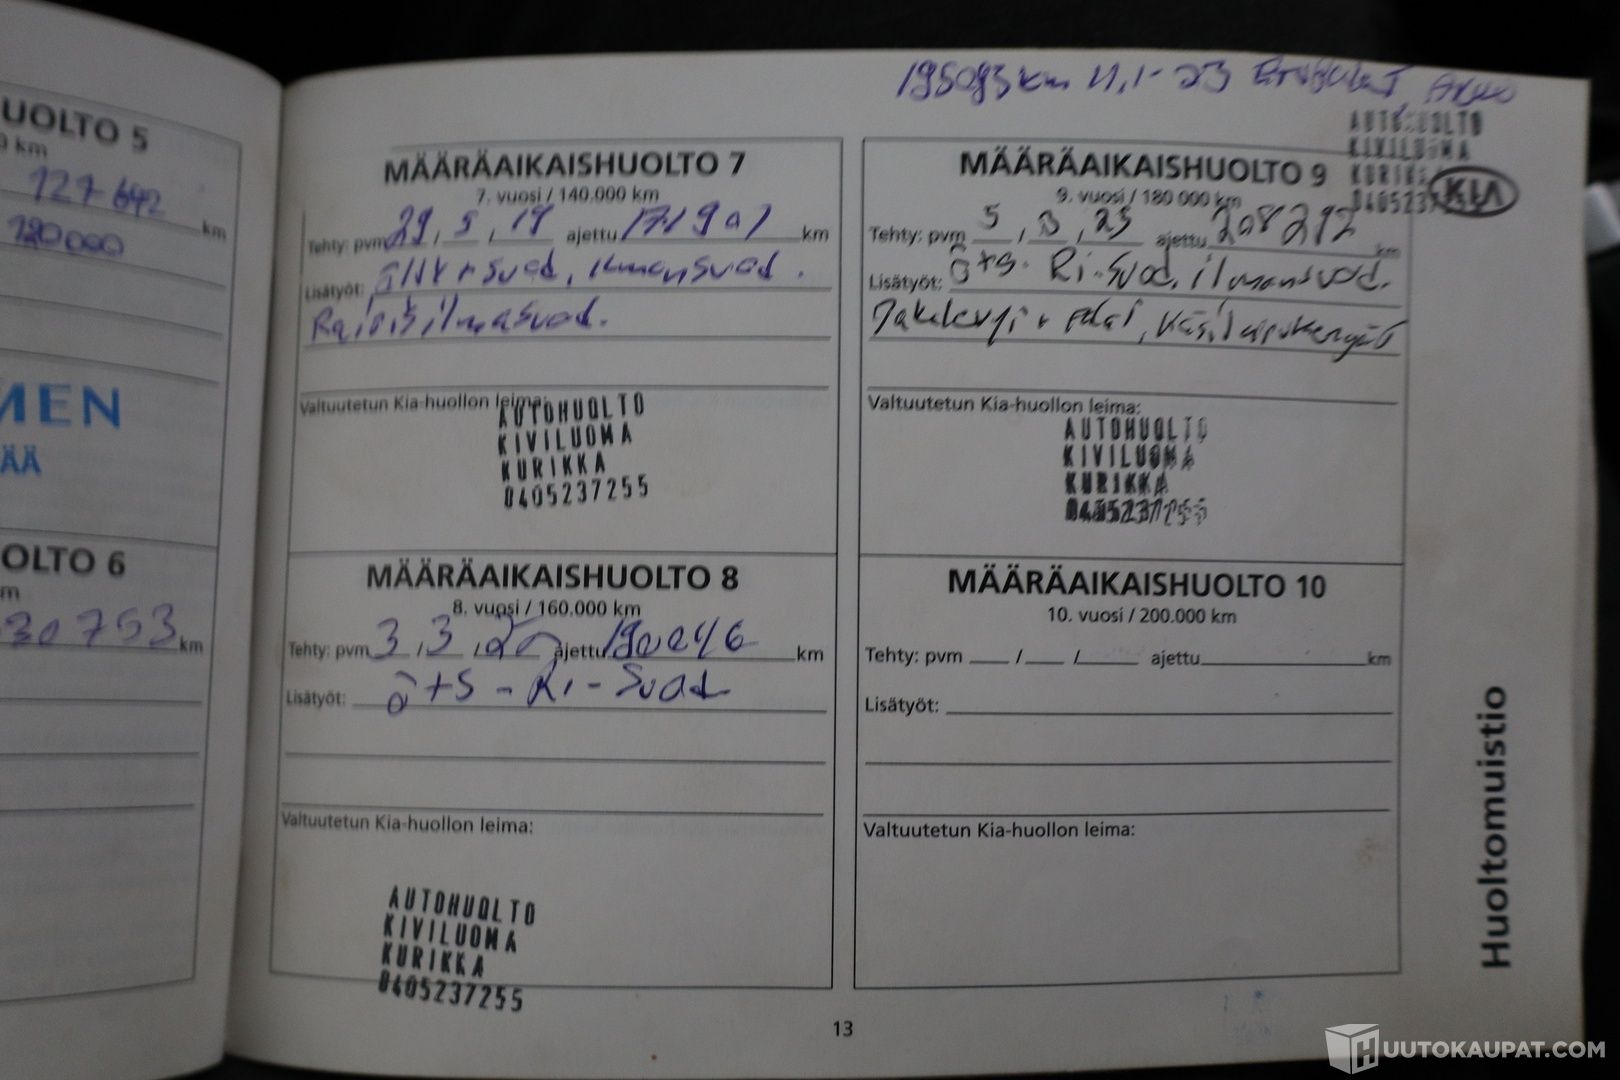 UOLTO 5
0 km
127 642 km
180000
MEN
ÄÄ
OLTO 6
m
30753 km
195093 km 11,1-23
AUTOHUOLTO
KIVILUOMA
KURIKKA
KIA
MÄÄRÄAIKAISHUOLTO 7
7. vuosi / 140.000 km
Tehty: pvm 29 / 5 / 19 ajettu 171901 km
Lisätyöt: öljyt + Suod, ilmansuod.
Raitisilmasuod.
Valtuutetun Kia-huollon leima:
AUTOHUOLTO
KIVILUOMA
KURIKKA
0405237255
MÄÄRÄAIKAISHUOLTO 8
8. vuosi / 160.000 km
Tehty: pvm 3 / 3 / ajettu 190046 km
Lisätyöt: ö+S - Ri - Suod
Valtuutetun Kia-huollon leima:
AUTOHUOLTO
KIVILUOMA
KURIKKA
0405237255
MÄÄRÄAIKAISHUOLTO 9
9. vuosi / 180 000 km
Tehty: pvm 5 / 3 / 23 ajettu 208292 km
Lisätyöt: ö+s. Ri-Suod, ilmansuod.
Jakolevyt + palat, Käsijarrukengät
Valtuutetun Kia-huollon leima:
AUTOHUOLTO
KIVILUOMA
KURIKKA
0405237255
MÄÄRÄAIKAISHUOLTO 10
10. vuosi / 200.000 km
Tehty: pvm ___ / ___ / ___ ajettu ___ km
Lisätyöt:
Valtuutetun Kia-huollon leima:
Huoltomuistio
13
HUUTOKAUPAT.COM